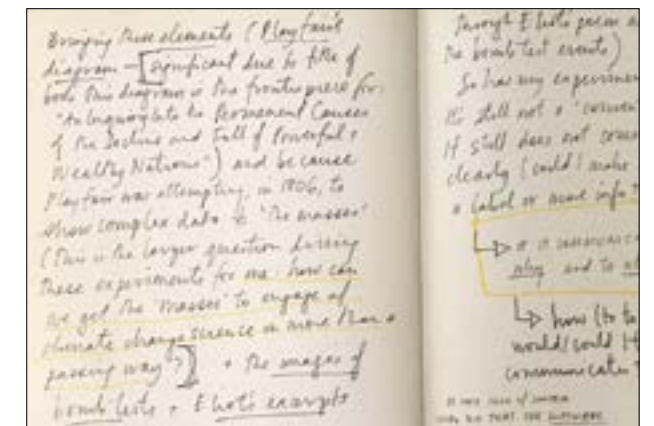 Bringing these elements (Playfair's
diagram — [significant due to title of
book this diagram is the frontispiece for:
"An Inquiry into the Permanent Causes
of the Decline and Fall of Powerful +
Wealthy Nations") and because
Playfair was attempting, in 1806, to
show complex data to "the masses"
(This is the larger question during
these experiments for me how can
we get the "masses" to engage w/
climate change science in more than a
passing way?)] + the images of
bomb tests + Eliot's excerpts
through Eliot's poem a
the bomb test events)
So far my experimen
it's still not a "conven
It still does not conv
clearly (could I make
a label or more info?
it communica
why and to
how (to
would/could it
communicate?